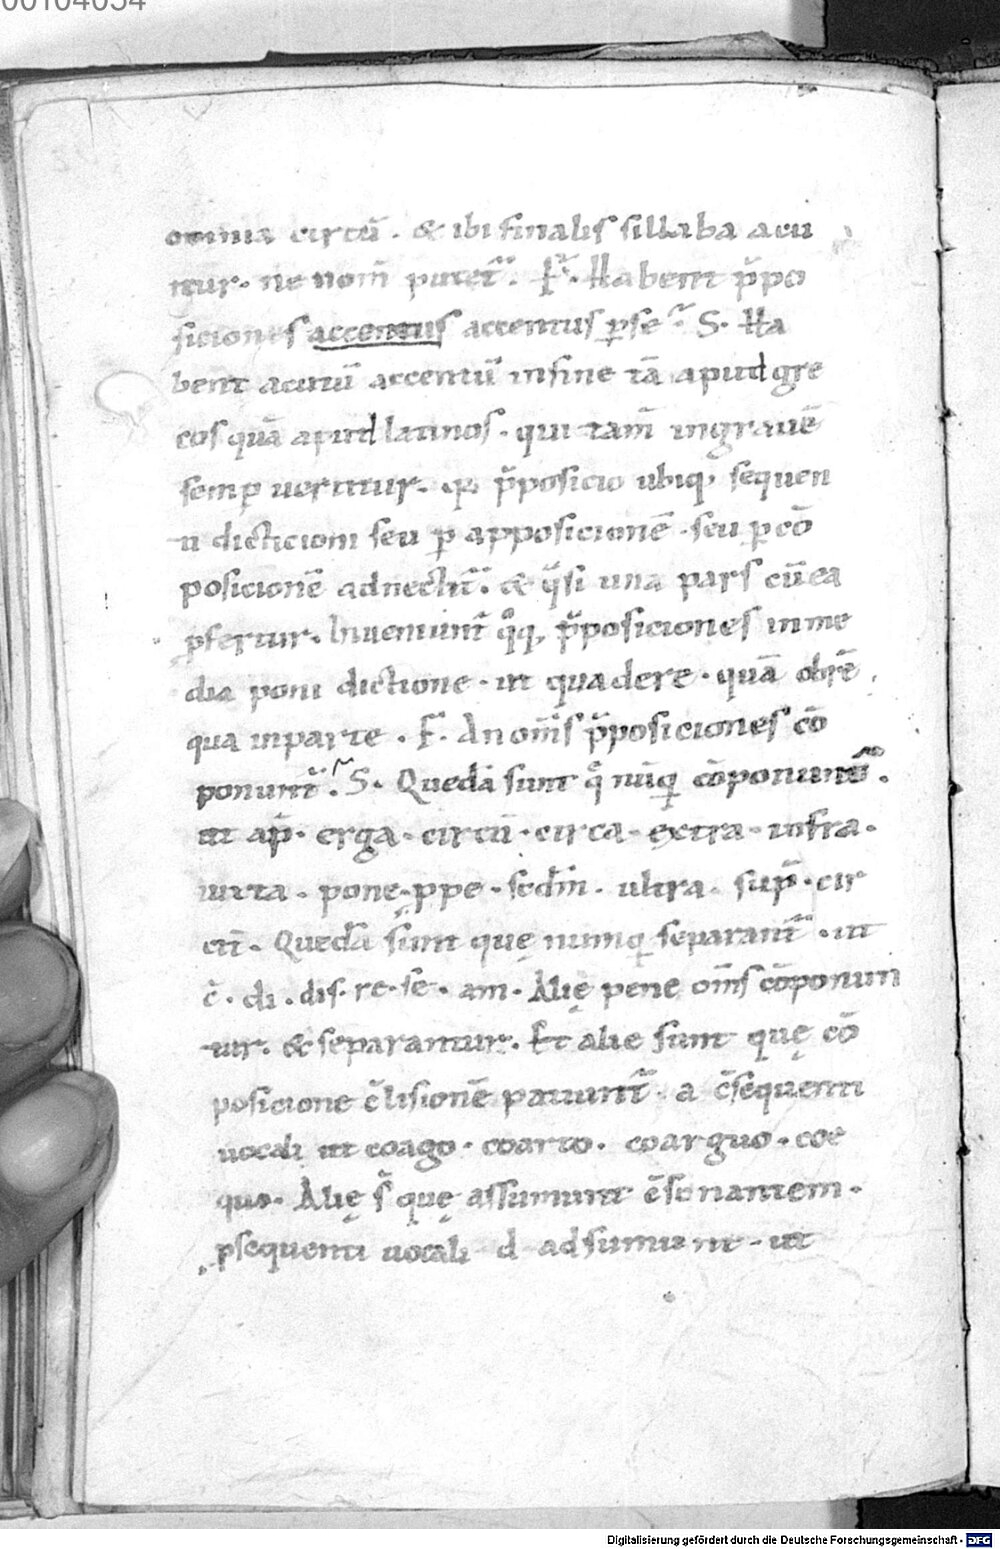 00104054
omnia circū. & ibi finalis sillaba acu
itur. ne nom̄ putet̃. F. Habent p̃po
siciones accentus accentus ꝑse S. Ha
bent acutū accentū infine tā apud gre
cos quā apud latinos. qui tam̄ ingrauē
semꝑ uertitur. q̨ p̃posicio ubiq; sequen
ti dictioni seu ꝑ apposicionē. seu ꝑ cō
posicionē adnectit̃. & q̃si una pars cū ea
ꝓfertur. Inueniunt̃ q̊q; p̃posiciones in me
dia poni dictione. ut quadere. quā obrē
qua inparte. F. An om̄s p̃posiciones cō
ponunt̃. S. Quedā sunt q̃ nūq̨ cōponunt̃.
ut ap̄. erga. circū. circa. extra. infra.
iuxta. pone. ꝓpe. scd̄m. ultra. sup̄. cir
cit̄. Quedā sunt quę numq̨ separant̃. ut
c̄. di. dis. re. se. am. Alię pene om̄s cōponun
tur. & separantur. Et alie sunt quę cō
posicione c̄lisionē patiunt̃. a c̄sequenti
uocali ut coago. coarto. coarguo. coe
quo. Alię s̄ quę assumunt c̄sonantem.
ꝓsequenti uocali d adsumunt. ut
Digitalisierung gefördert durch die Deutsche Forschungsgemeinschaft - DFG